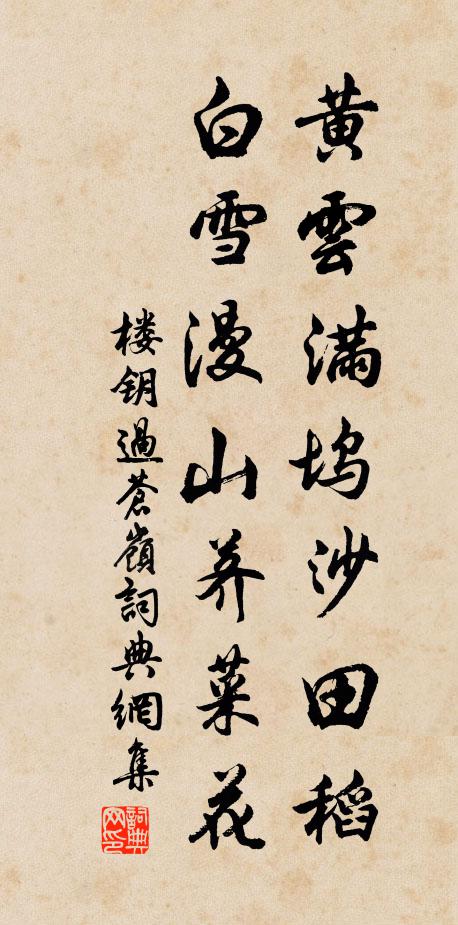 黄雲滿塢沙田稻
白雪漫山荞菜花
楼钥過蒼嶺詞典網集
詞典
网印